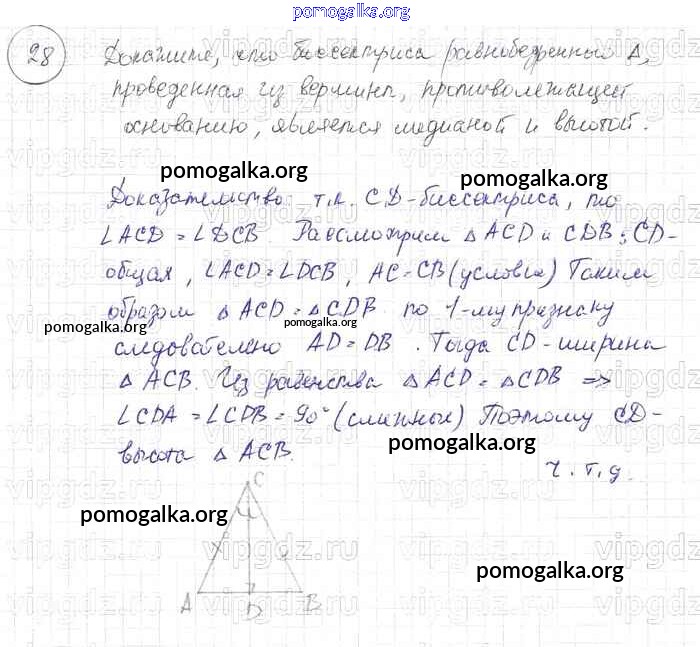 pomogalka.org
28 Докажите, что биссектриса равнобедренный Δ,
проведенная из вершины, противолежащей
основанию, является медианой и высотой.
pomogalka.org pomogalka.org
Доказательство: т.к. CD-биссектриса, то
∠ACD = ∠DCB. Рассмотрим Δ ACD и CDB: CD-
общая, ∠ACD=∠DCB, AC=CB (условие) Таким
образом Δ ACD = Δ CDB по 1-му признаку
pomogalka.org pomogalka.org
следователено AD=DB. Тогда CD-ширина
Δ ACB. Из равенства Δ ACD = Δ CDB =>
∠CDA = ∠CDB = 90° (смежные) Поэтому CD-
pomogalka.org
высота Δ ACB.
ч.т.д.
C
pomogalka.org
pomogalka.org
A D B
vipgdz.ru